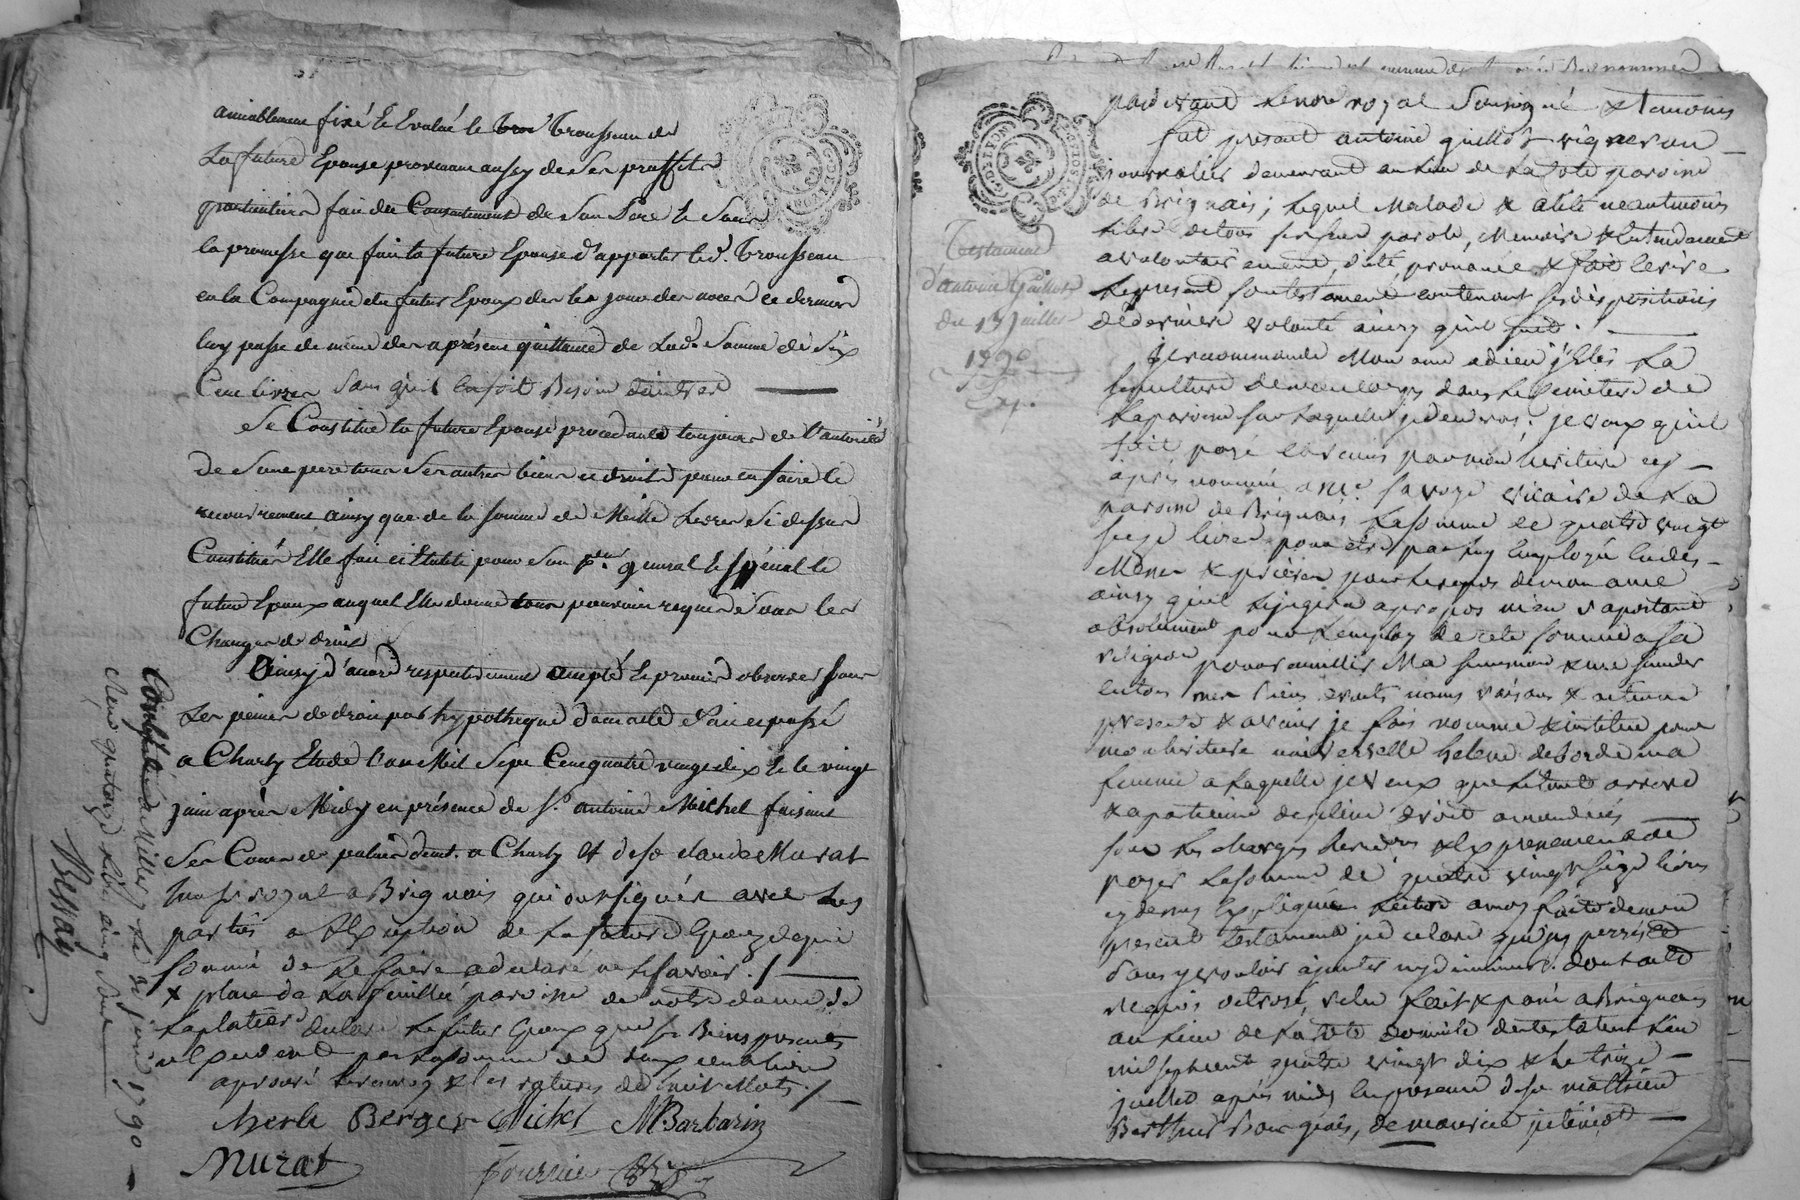 amiablement fixé et Evalué le trousseau de
La future Epouse provenant aussy de Ses proffits
particuliers fait du Consentement de Son Pere et Sous
la promesse que fait la future Epouse d'apporter led. trousseau
en la Compagnie du futur Epoux des les jour des noces ce dernier
luy passe de même des a présent quittance de Lad. Somme de Six
Cent livres Sans qu'il en soit Besoin d'autres
Se Constitue la future Epouse procedante toujours de l'autorité
de Son pere tous Ses autres biens et droits pour en faire le
recouvrement ainsy que de la somme de Mille Livres Ci dessus
Constituée Elle fait et Etablit pour Son pr. general et spécial le
futur Epoux auquel Elle donne tous pouvoirs requis Sous les
Charges de droit
Ainsy d'accord respectivement accepté et promis observer sous
Les peines de droit par hypotheque dommages fait et passé
a Charly Etude l'an Mil Sept Cent quatre vingt dix et le vingt
juin après Midy en présence de Sr. antoine Michel faisant
Ses Cours de palais demt. a Charly et de Sr. claude Murat
royal a Brignais qui ont signés avec Les
parties a l'Exception de La future Epouze de qui
sommé de Le faire a declaré ne Le Savoir ./.
x place de La feuillée paroisse de notre dame de
Laplatiere declare Le futur Epoux que Ses Biens presents
n'Excedent pas La somme de deux cent livres
aprouvé Le renvoy & les ratures de huit Mots ./.
Merle Berger Michel MBarbarin
Murat
Fournier
Controllé a Millery le 21 juin 1790
Reçu quatorze livres cinq sous
Besson
G. DE LYON
pardevant Le no.re royal Soussigné & temoins
fut present antoine guillot vigneron
journalier demeurant au lieu de La Cote paroisse
de Brignais ; Lequel Malade & alité neantmoins
Libre de tous ses sens parole, Memoire & Entendement
a volontairement, dicté, prononcé & fait Ecrire
Le present Son testament contenant ses dispositions
de derniere volonté ainsy qu'il suit.
Testament
d'antoine Guillot
du 13 Juillet
1790
Exp.
Je recommande Mon ame a dieu j'Elis La
sepulture de mon corps dans Le Cemetiere de
La paroisse Sur Laquelle je decedrai ; je veux qu'il
soit payé par mon heritiere cy
après nommée, a Me. Savoye vicaire de La
paroisse de Brignais La Somme de quatre vingt
seize livres pour etre par luy Employée En des
Messes & prières pour Le repos de mon ame
ainsy qu'il Le jugera apropos m'en raportant
absolument pour L'employ de cete somme a sa
religion pour omillir Ma succession &
en tous mes biens droits noms raisons & actions
presents & avenir je fais nomme & institue pour
mon heritiere universelle helene desborde ma
femme a Laquelle je veux que Le tout arrive
& apartienne de plein droit amon deces
sous Les charges de droit & Expressement de
payer La somme de quatre vingt Seize livres
cy dessus Expliquée Lecture a moy faite de mon
present testament je declare que j'y persiste
Sans y vouloir ajouter ny diminuer. dont acte
requis octroyé, relu fait & passé a Brignais
au Lieu de La Cote domicile du testateur L'an
mil sept cent quatre vingt dix & Le treize
juillet après midy En presence de Sr. mathieu
Berthier Bourgeois, de maurice